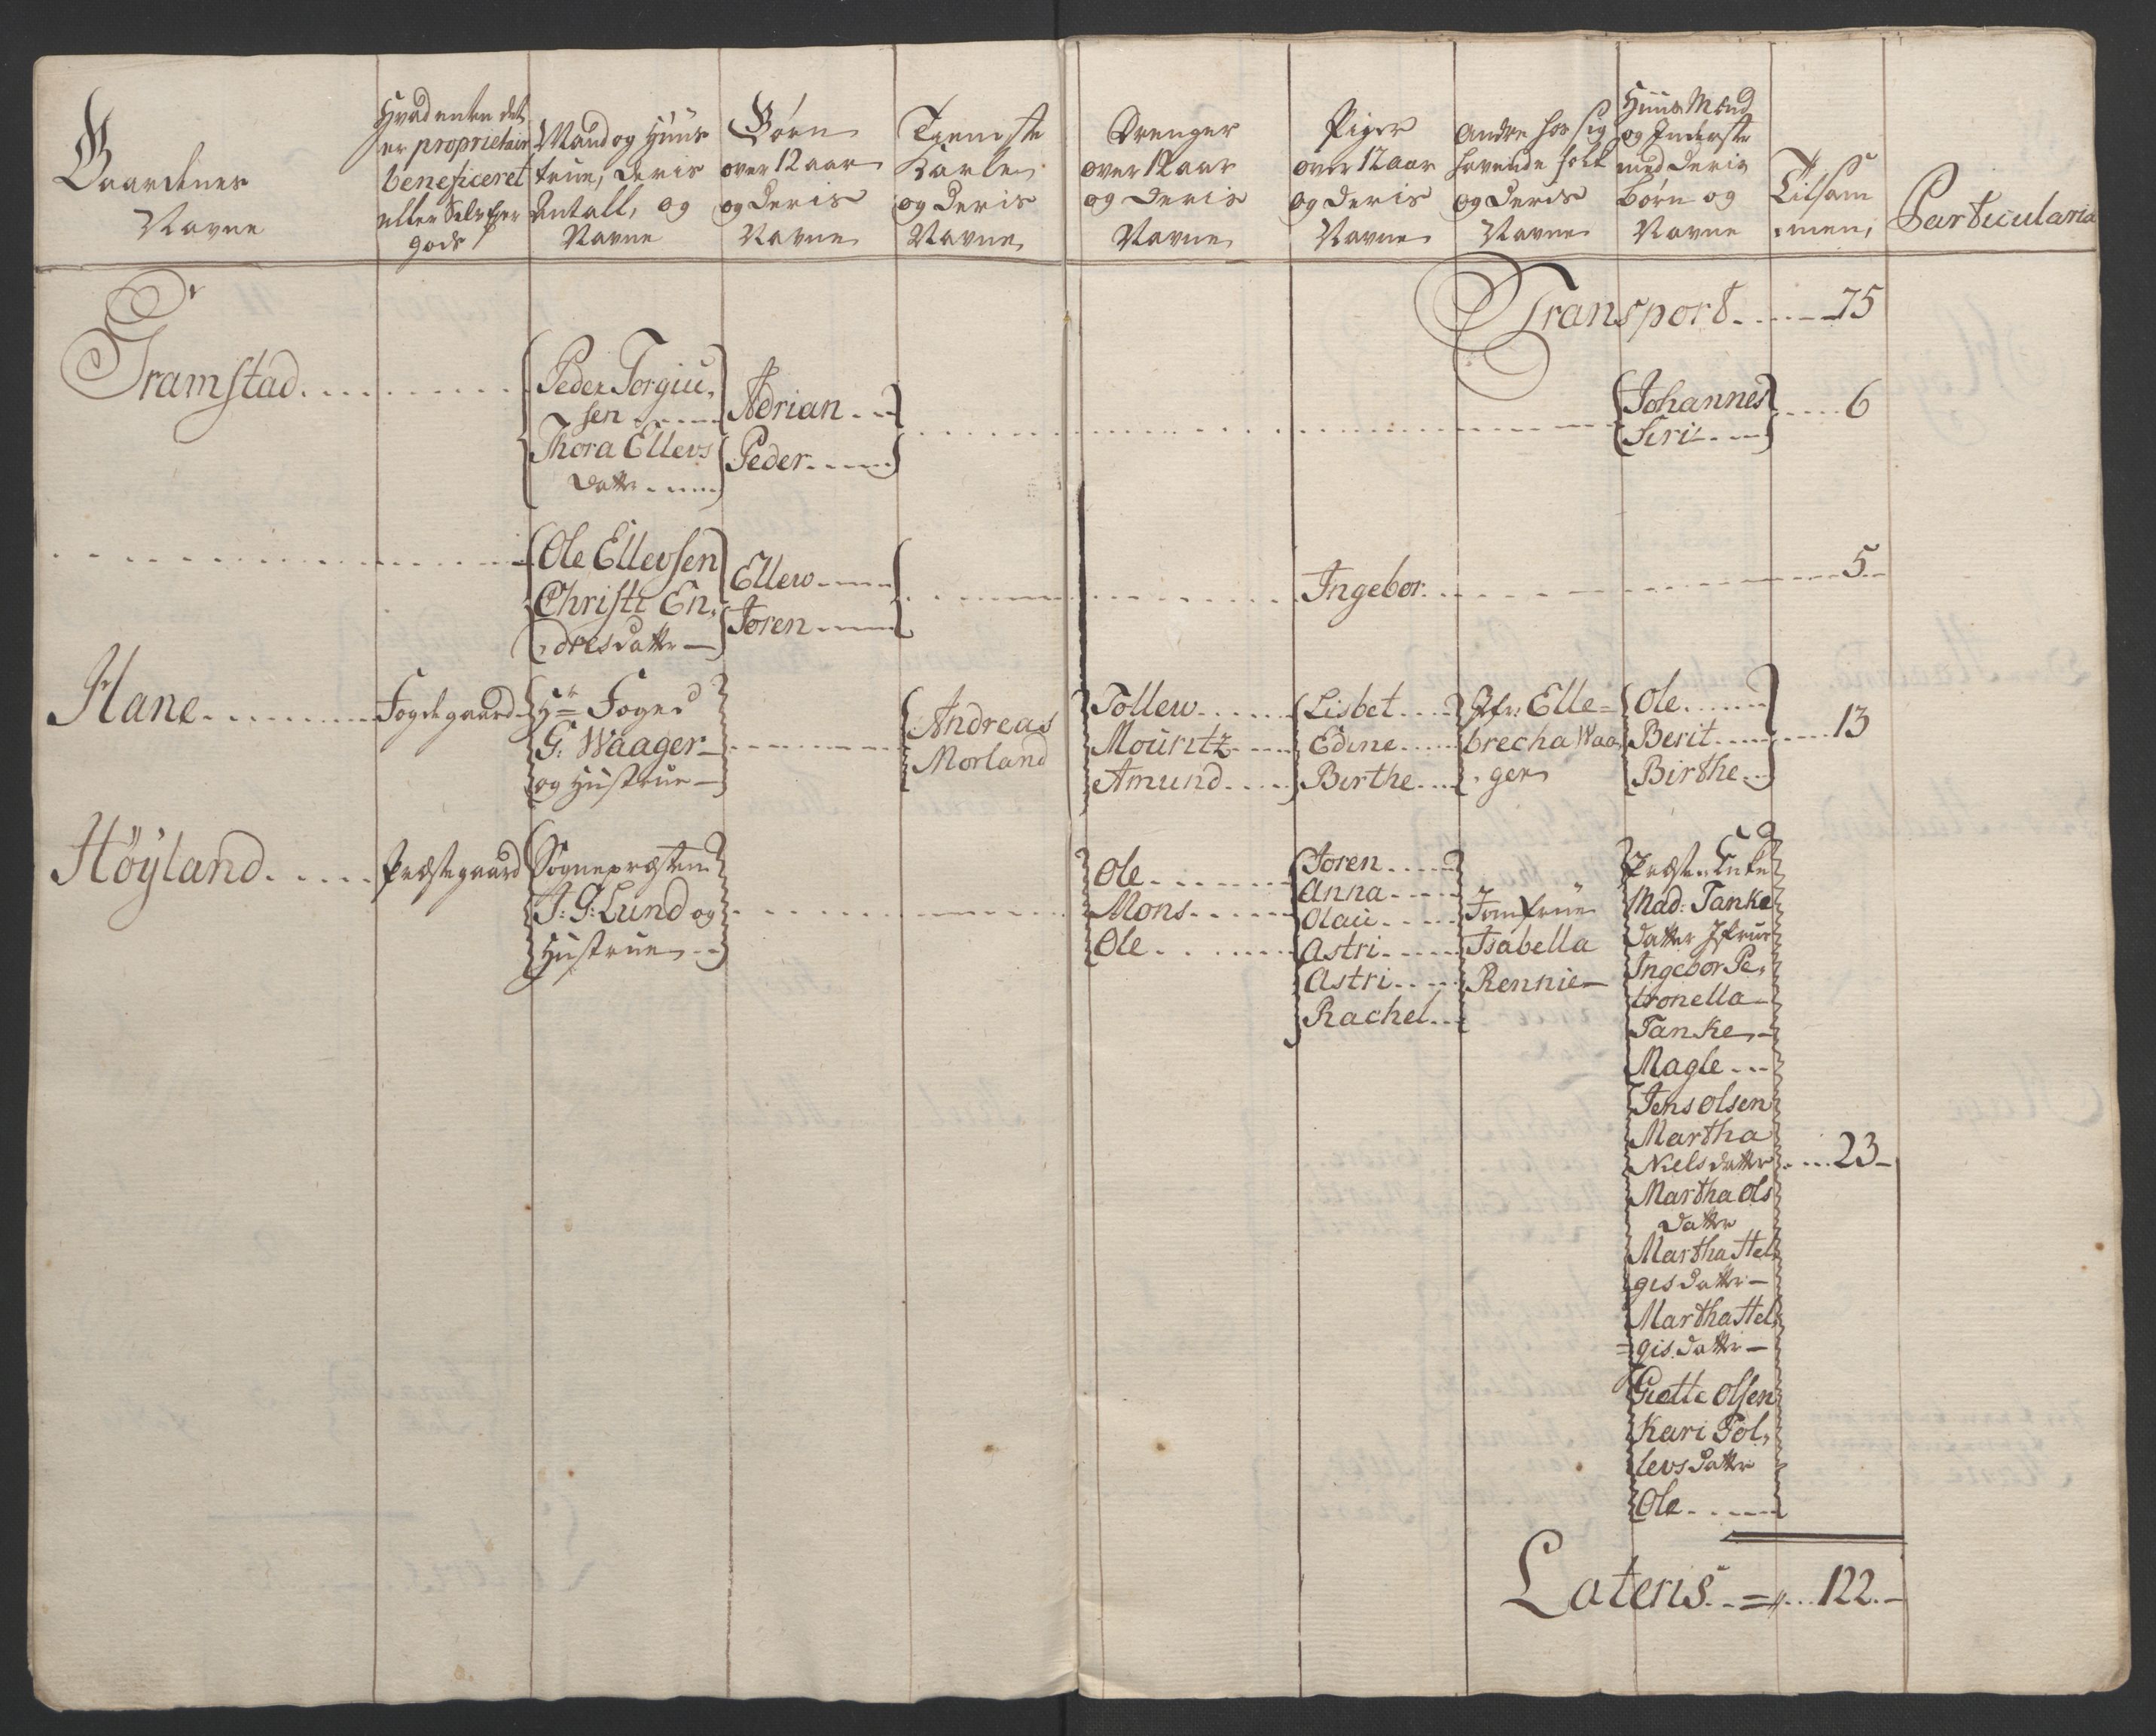 Gaardenes
Navne
Hvad enten det
er proprietair
beneficeret
eller Selv Eyer
gods
Mand og Huus
true, deris
Antall, og
Navne
Børn
over 12 aar
og deris
Navne
Tieniste
Karle
og deris
Navne
Drenger
over 12 aar
og deris
Navne
Piger
over 12 aar
og deris
Navne
Andre hos sig
havende folk
og deris
Navne
Huus Mænd
og Inderste
med deris
børn og
Navne
Tilsam
men,
Particularia
Transport. . . . . 75
Gramstad. . . .
Peder Torgiu,
sen
Thora Ellevs
datter
Adrian
Peder
Johannes
Siri
6
Ole Ellevsen
Christi En,
dresdatter
Ellew
Joren
Ingebor.
5
Hane
Fogdegaard
Hr Foged
G: Waager
og Hustrue
Andreas
Morland
Tollew
Mouritz
Amund
Lisbet
Edine
Birthe
Jfr: Elle=
brecha Waa
gers
Ole
Berit
Birthe
13
Höyland
Præstegaard
Sognepræsten
J: G: Lund og
Hustrue
Ole
Mons
Ole
Joren
Anna
Olau
Astri
Astri
Rachel
Jomfrue
Isabella
Rennie
Præste Enke
Mad: Tanke
datter Jfrue
Ingebor Pe,
tronella
Tanke
Magle
Jens Olsen
Martha
Nielsdatter
Martha Ols
datter
Martha Hel
gisdatter
Martha Hel
=gisdatter
Giette Olsen
Kari Tol,
levsdatter
Ole
23
Lateris = . . . 122.